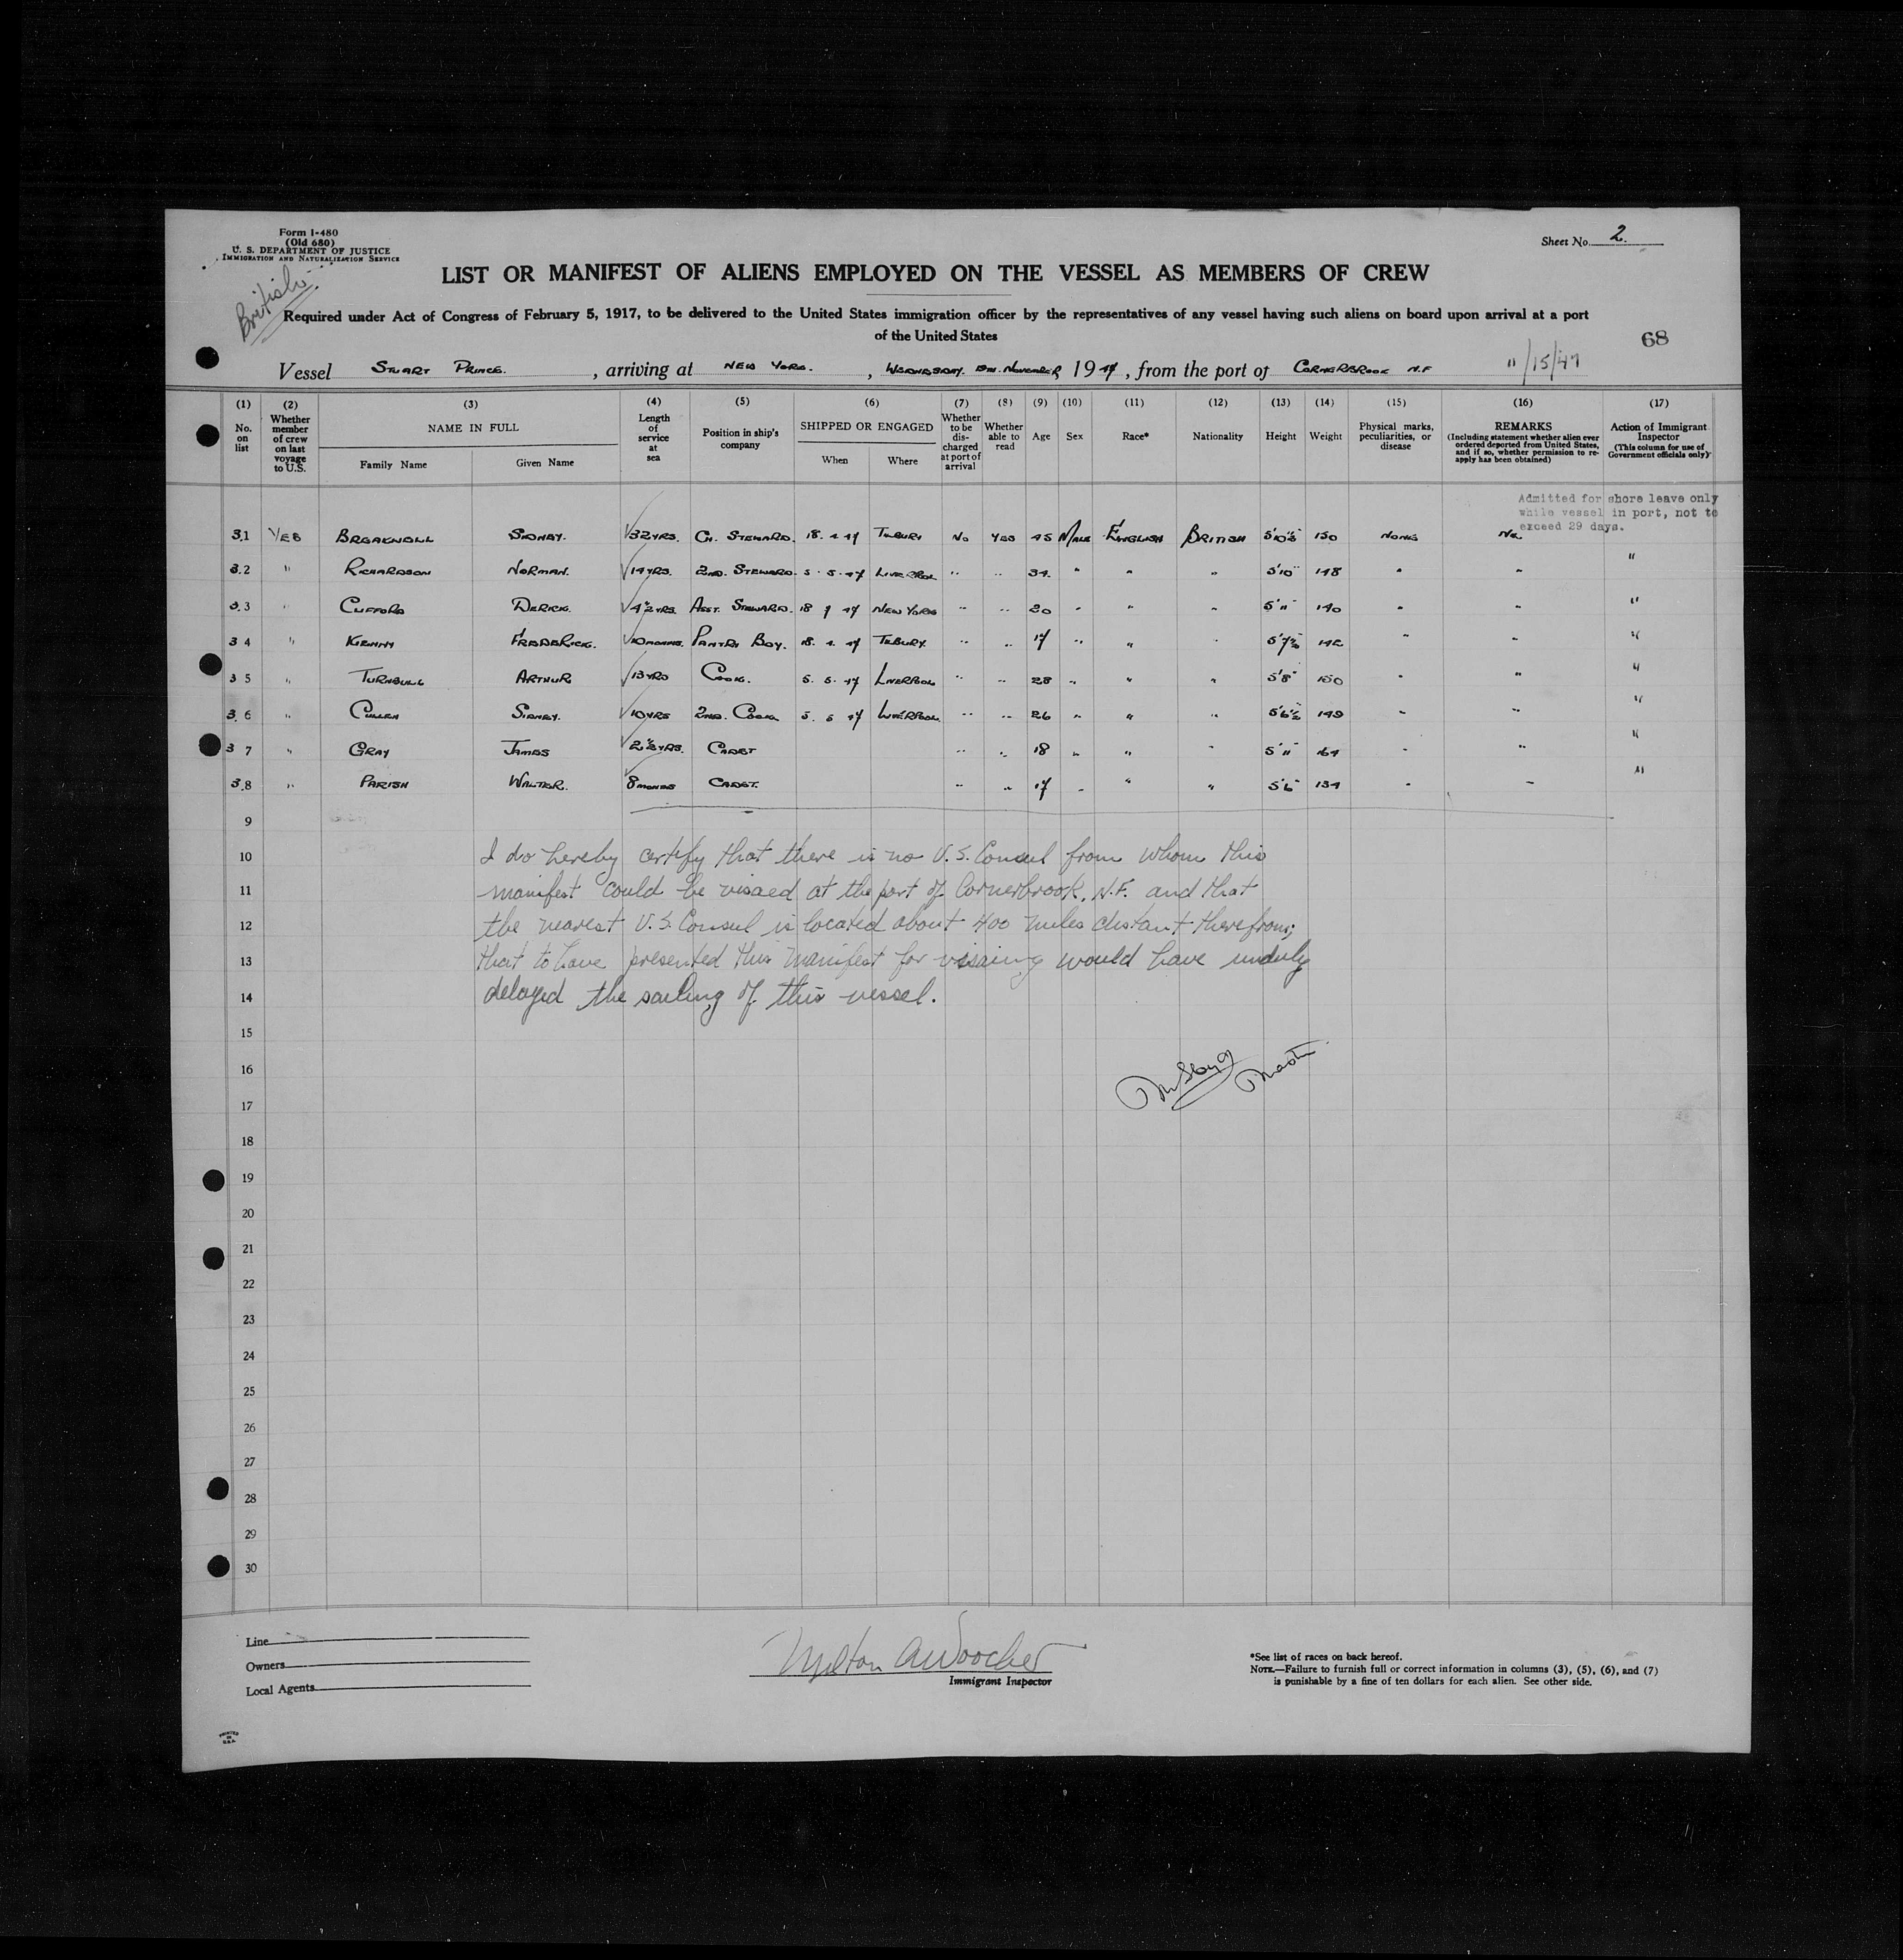 Form I-480
(Old 680)
U. S. DEPARTMENT OF JUSTICE
IMMIGRATION AND NATURALIZATION SERVICE
British
Sheet No. 2.
LIST OR MANIFEST OF ALIENS EMPLOYED ON THE VESSEL AS MEMBERS OF CREW
Required under Act of Congress of February 5, 1917, to be delivered to the United States immigration officer by the representatives of any vessel having such aliens on board upon arrival at a port
of the United States
68
Vessel STUART PRINCE. , arriving at NEW YORK. , WEDNESDAY. NOVEMBER, 1947, from the port of CORNERBROOK N.F
11/15/47
(1) No. on list
(2) Whether member of crew on last voyage to U.S.
(3) NAME IN FULL
Family Name
Given Name
(4) Length of service at sea
(5) Position in ship's company
(6) SHIPPED OR ENGAGED
When
Where
(7) Whether to be discharged at port of arrival
(8) Whether able to read
(9) Age
(10) Sex
(11) Race*
(12) Nationality
(13) Height
(14) Weight
(15) Physical marks, peculiarities, or disease
(16) REMARKS
(Including statement whether alien ever ordered deported from United States, and if so, whether permission to re-apply has been obtained)
(17) Action of Immigrant Inspector
(This column for use of Government officials only)
Admitted for shore leave only
while vessel in port, not to
exceed 29 days.
31 YES BREAKWELL SIDNEY. 32 YRS. CH. STEWARD. 18. 4. 47 TILBURY NO YES 45 MALE ENGLISH BRITISH 5'10½" 150 NONE NIL
32 " RICHARDSON NORMAN. 14 YRS. 2ND. STEWARD. 5. 5. 47 LIVERPOOL " " 34. " " " 5'10" 148 " " "
33 " CLIFFORD DERICK. 4½ YRS. ASST. STEWARD. 18 9 47 NEW YORK " " 20 " " " 5'11" 140 " " "
34 " KENNY FREDERICK. 10 MONTHS. PANTRY BOY. 18. 4. 47 TILBURY. " " 17 " " " 5'7½" 142 " " "
35 " TURNBULL ARTHUR 13 YRS COOK. 5. 5. 47 LIVERPOOL " " 28 " " " 5'8" 150 " " "
36 " CULLEN SIDNEY. 10 YRS 2ND. COOK 5. 5 47 LIVERPOOL. " " 26 " " " 5'6½" 149 " " "
37 " GRAY JAMES 2½ YRS. CADET " " 18 " " " 5'11" 164 " " "
38 " PARISH WALTER. 8 MONTHS CADET. " " 17 " " " 5'6" 134 " " "
9
10 I do hereby certify that there is no U.S. Consul from whom this
11 manifest could be visaed at the port of Cornerbrook, N.F. and that
12 the nearest U.S. Consul is located about 400 miles distant therefrom;
13 that to have presented this manifest for visaing would have unduly
14 delayed the sailing of this vessel.
15
16 Master
17
18
19
20
21
22
23
24
25
26
27
28
29
30
Line
Owners
Local Agents
Milton A Woocher
Immigrant Inspector
*See list of races on back hereof.
NOTE.—Failure to furnish full or correct information in columns (3), (5), (6), and (7)
is punishable by a fine of ten dollars for each alien. See other side.
PRINTED
IN
U.S.A.